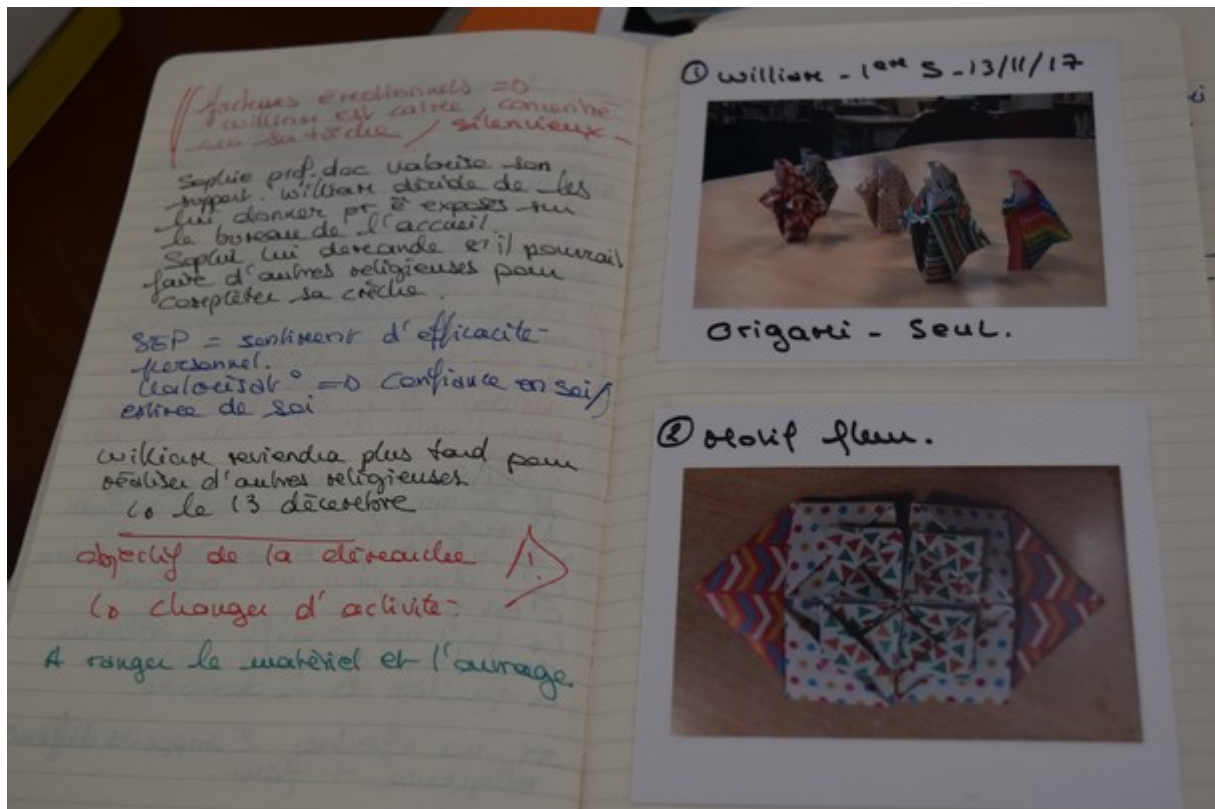 facteurs émotionnels =0
william est calme, concentré
sur sa tâche / silencieux -
Sophie prof. doc valorise son
support. william décide de les
lui donner pr ê exposés sur
le bureau de l'accueil.
Sophie lui demande s'il pourrait
faire d'autres religieuses pour
complèter sa crèche.
SEP = sentiment d'efficacité-
personnel.
Valorisat° =0 confiance en soi/
estime de soi
william reviendra plus tard pour
réaliser d'autres religieuses
le 13 décembre
objectif de la démarche /!\
changer d'activité-
A ranger le matériel et l'ouvrage.
① William - 1ère S - 13/11/17
Origami - Seul.
② Motif fleur.